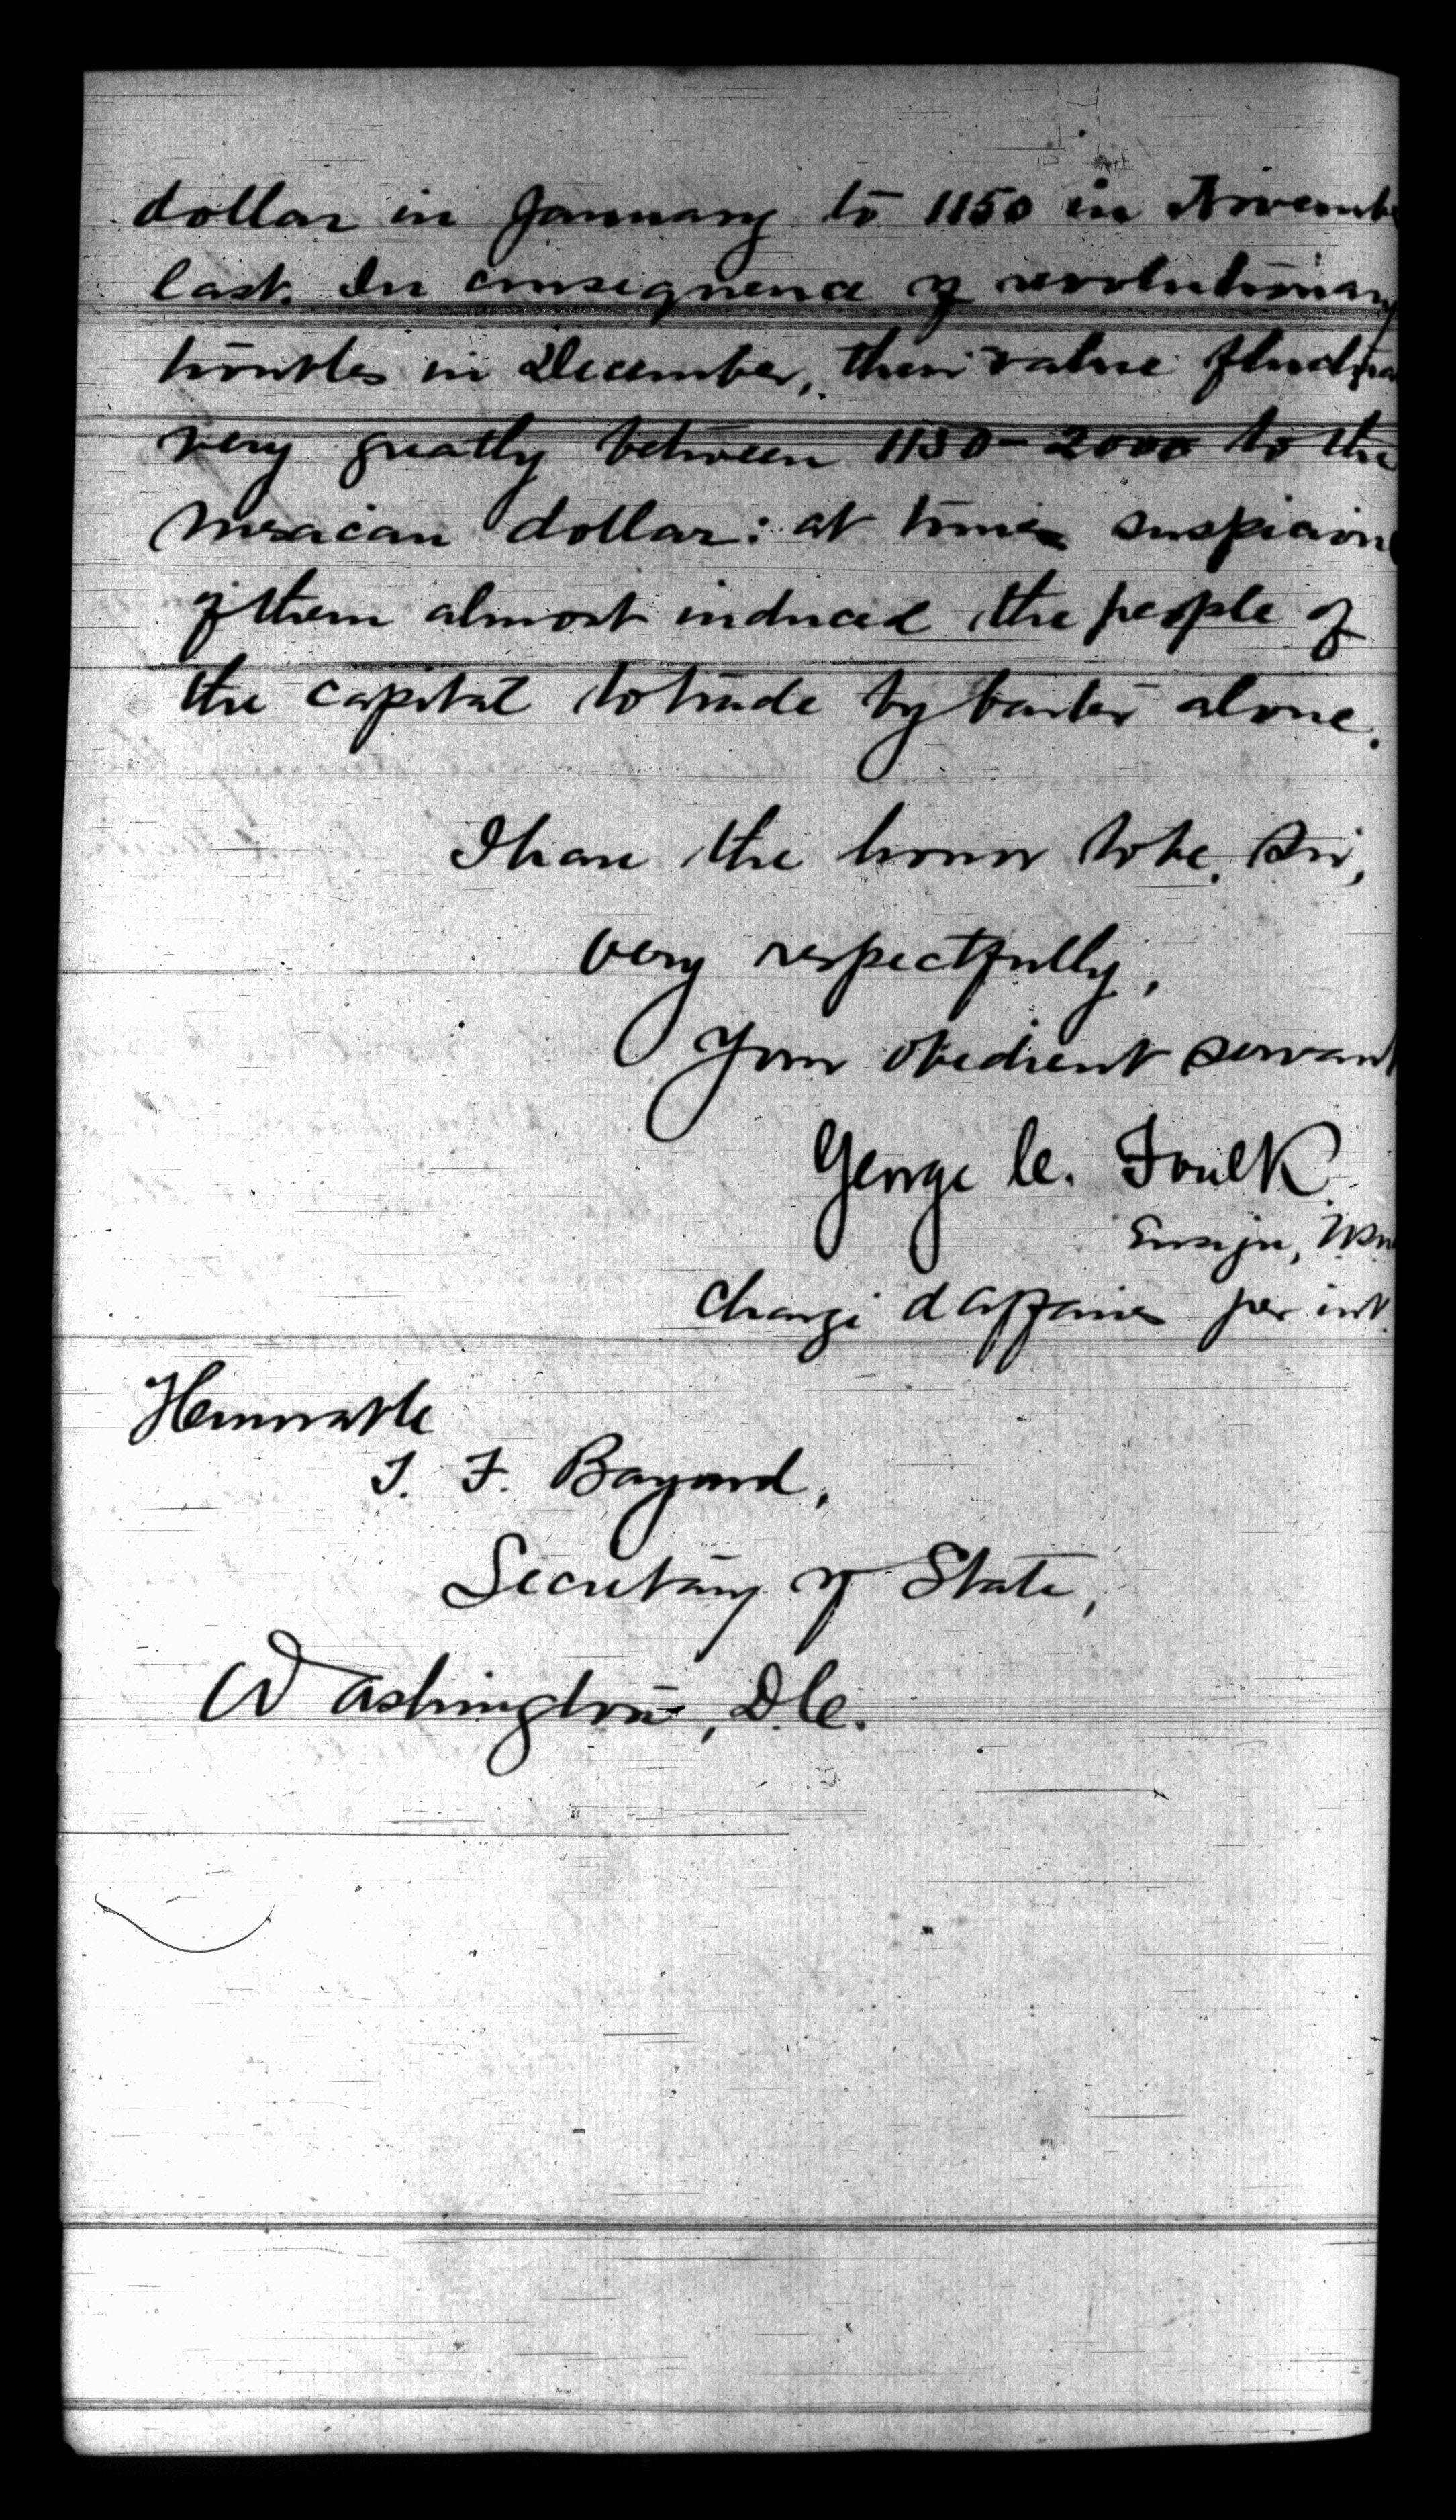 dollar in January to 1150 in Novembe
last. In consequence of revolutionary
troubles in December, their value fluctua
very greatly between 1130-2000 to the
Mexican dollar: at times suspicion
of them almost induced the people of
the capital to trade by barter alone.
I have the honor to be, Sir,
very respectfully,
Your obedient servant
George C. Foulk
Ensign,
Chargé d'Affaires per int.
Honorable
T. F. Bayard,
Secretary of State,
Washington, D.C.